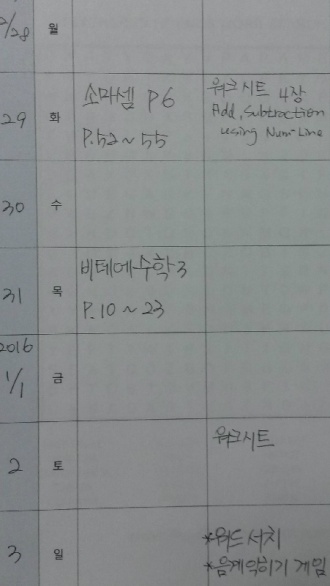 /28 월
29 화 소마셈 P6 워크시트 4장
P.52~55 Add, Subtraction
using Num-Line
30 수
31 목 비테에수학3
P.10~23
2016
1/1 금
2 토 워크시트
3 일 *워드서치
*음계익히기 게임